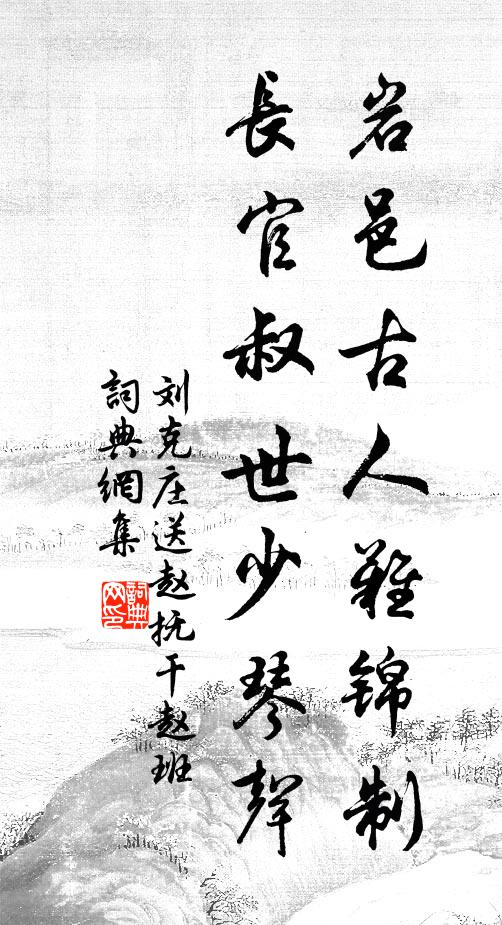 岩邑古人難錦制
長官叔世少琴聲
刘克庄送赵抚干赵班
詞典網集
詞典网印